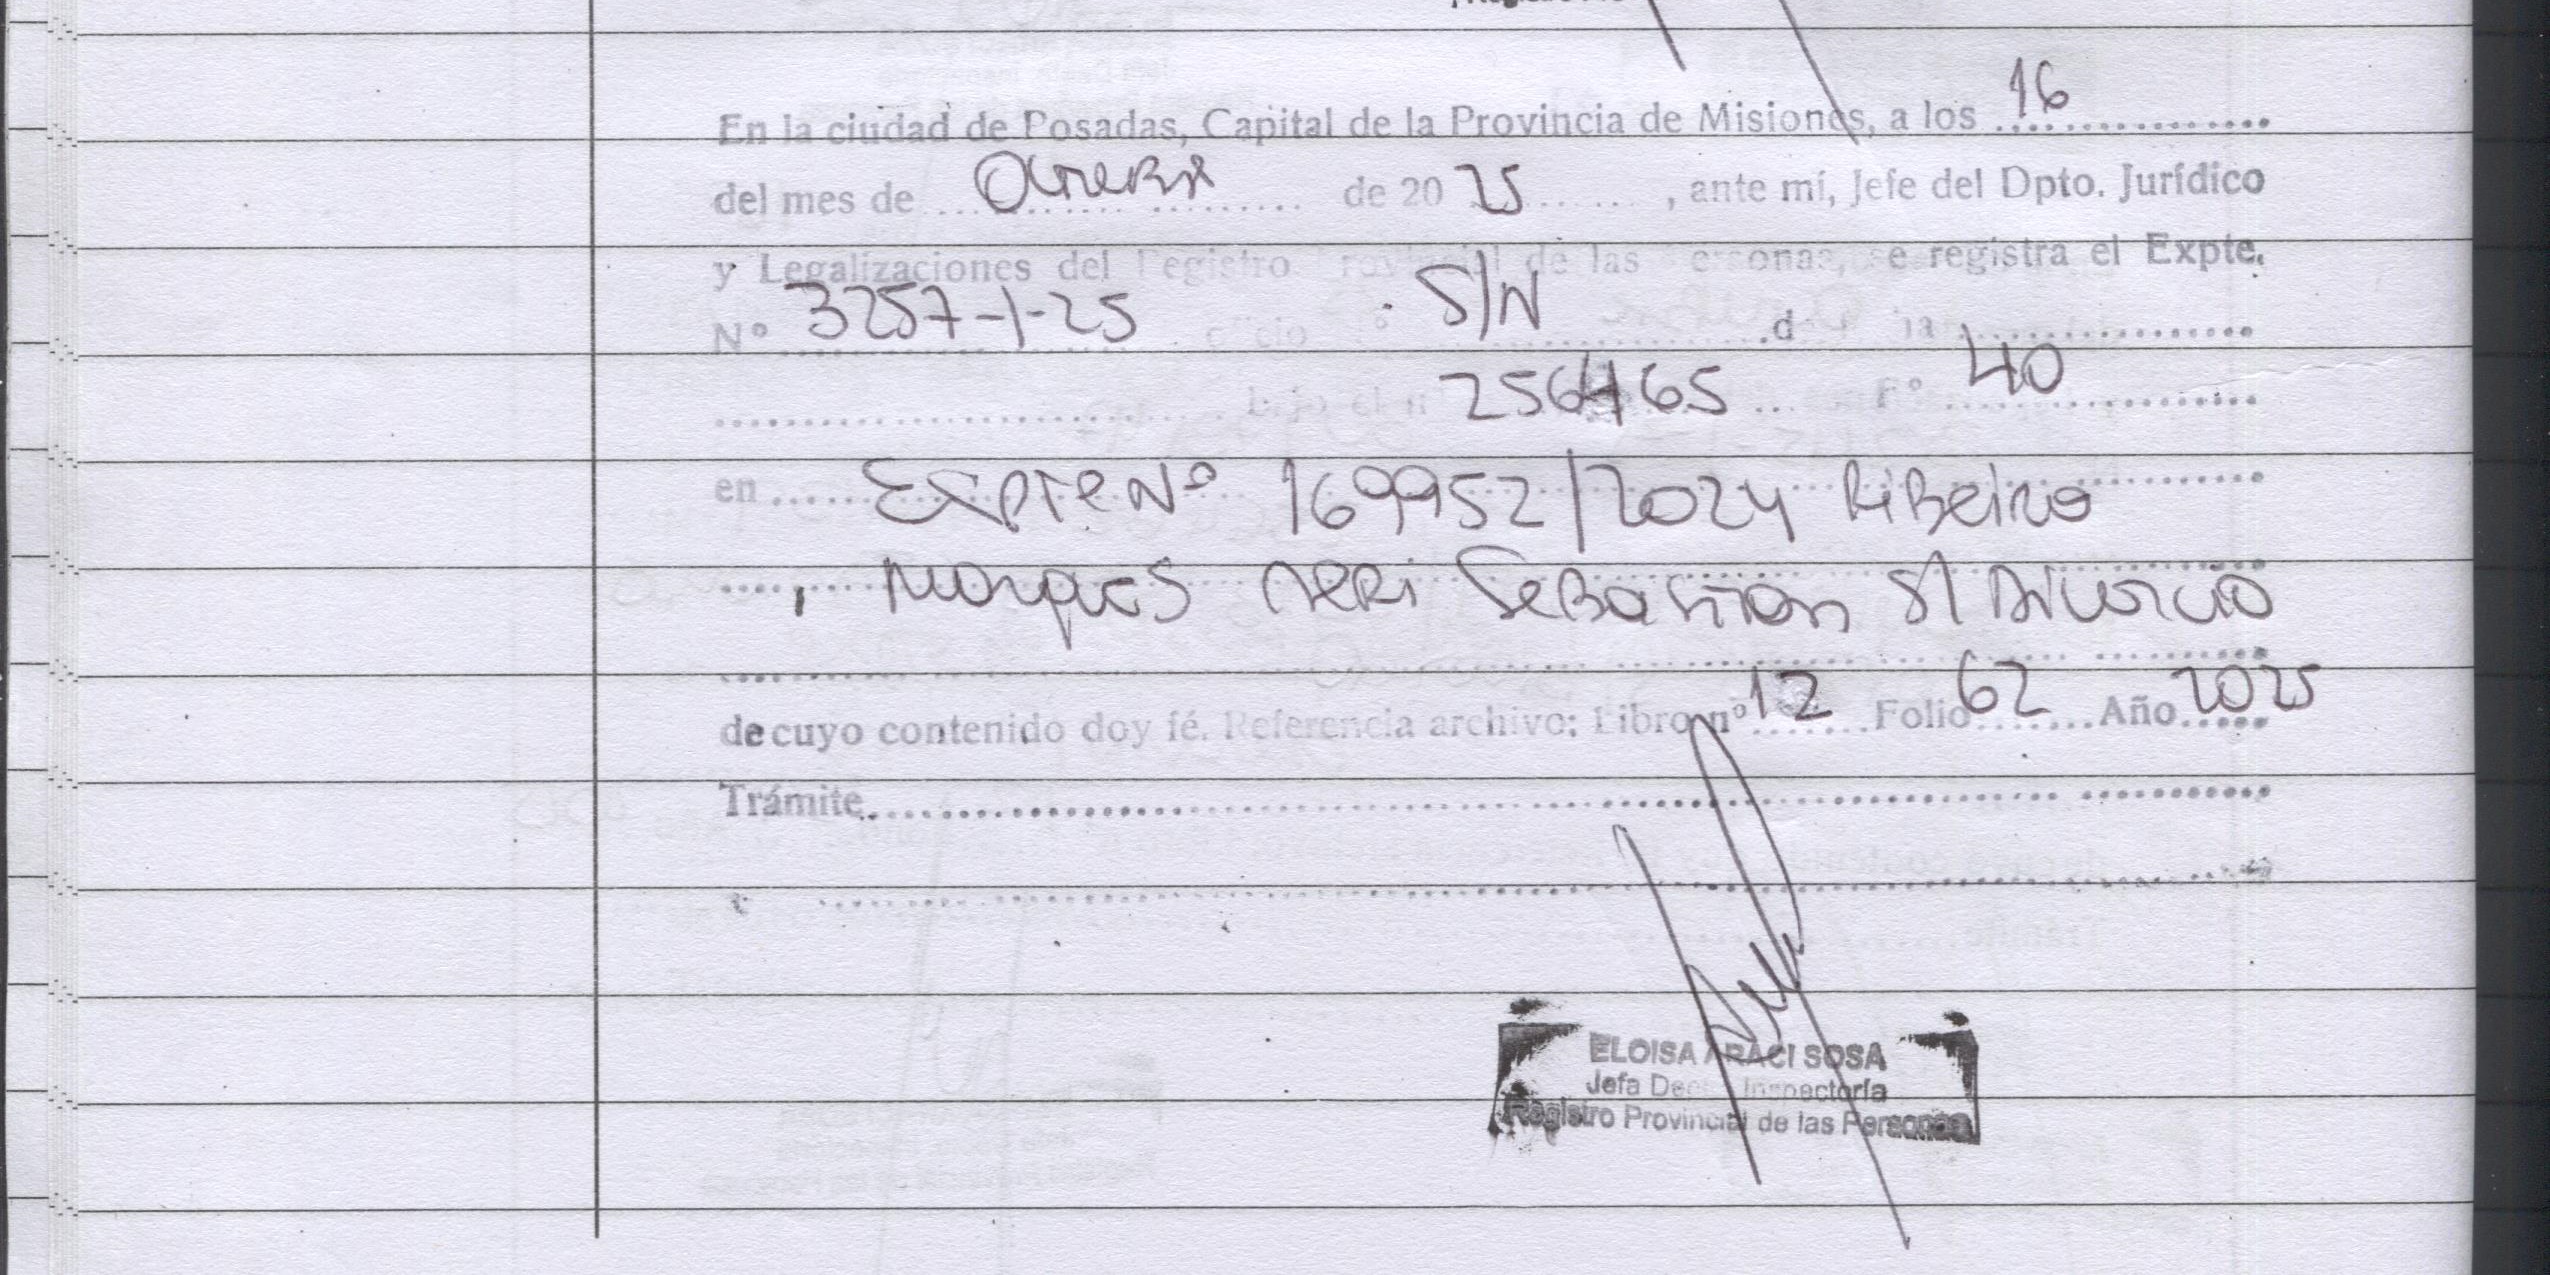 En la ciudad de Posadas, Capital de la Provincia de Misiones, a los 16
del mes de Octubre de 20 25, ante mí, Jefe del Dpto. Jurídico
y Legalizaciones del Registro Provincial de las Personas, se registra el Expte.
Nº 3257-1-25 oficio Nº S/N
bajo el nº 256465 Fº 40
en Expte Nº 169952/2024 Ribeiro
Marques Neri Sebastian S/ Divorcio
de cuyo contenido doy fé. Referencia archivo: Libro nº 12 Folio 62 Año 2025
Trámite
ELOISA ARACI SOSA
Jefa Inspectoría
Registro Provincial de las Personas